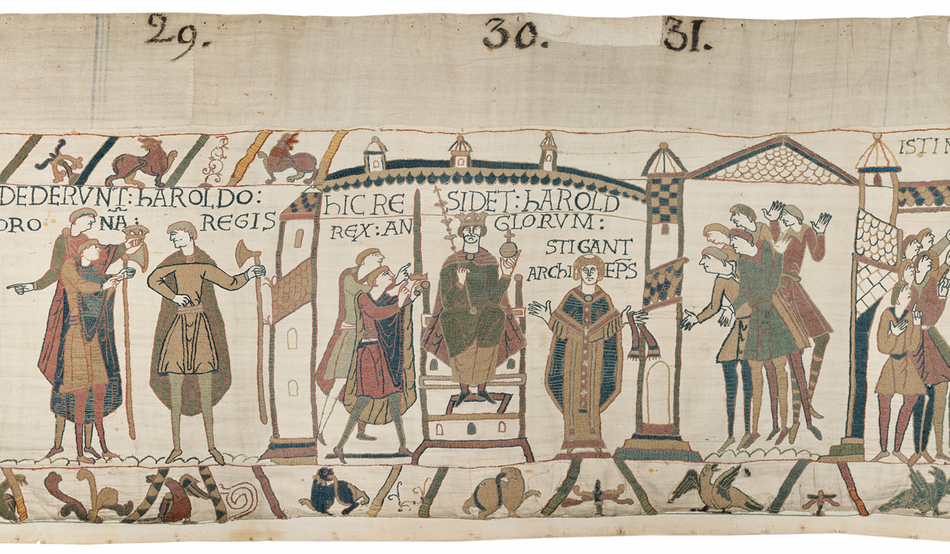 29.
30.
31.
DEDERVNT: hAROLDO:
ORO NA: REGIS
hIC RE SIDET: hAROLD
REX: AN GLORVM:
STIGANT
ARChI EPS
ISTI